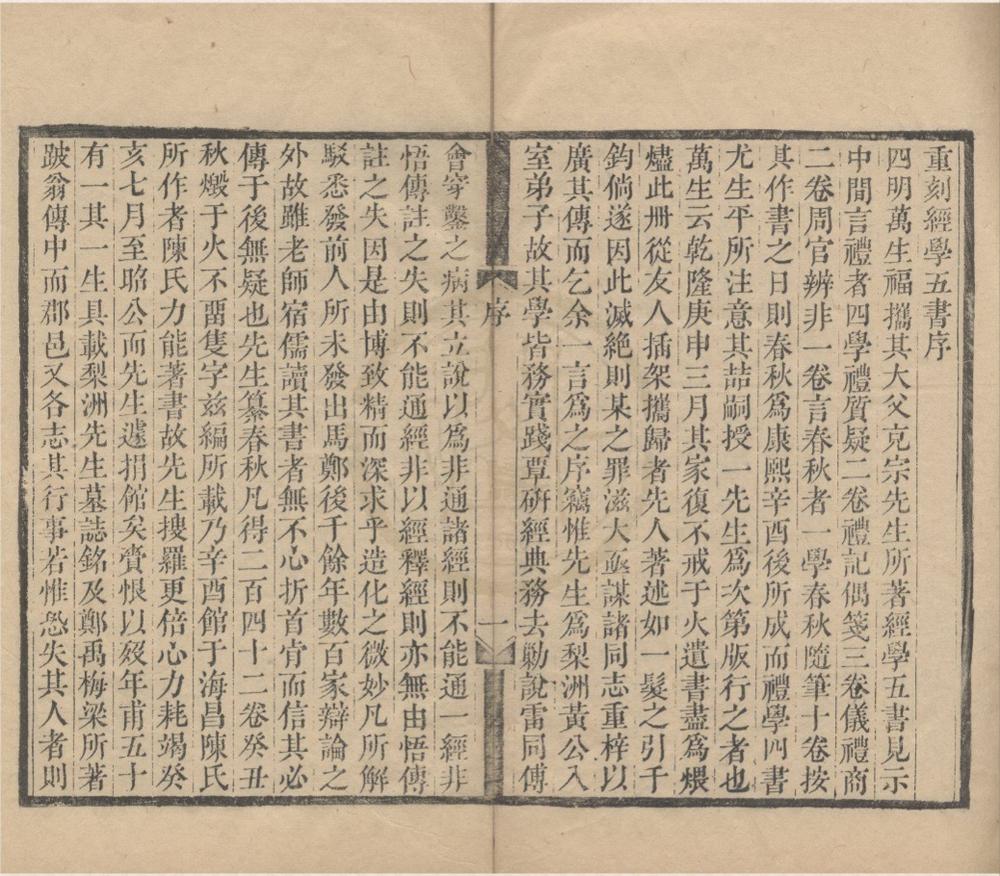 重刻經學五書序
四明萬生福攜其大父充宗先生所著經學五書見示
中間言禮者四學禮質疑二卷禮記偶箋三卷儀禮商
二卷周官辨非一卷言春秋者一學春秋隨筆十卷按
其作書之日則春秋爲康熙辛酉後所成而禮學四書
尤生平所注意其喆嗣授一先生爲次第版行之者也
萬生云乾隆庚申三月其家復不戒于火遺書盡爲煨
燼此册從友人插架攜歸者先人著述如一髮之引千
鈞倘遂因此滅絶則某之罪滋大亟謀諸同志重梓以
廣其傳而乞余一言爲之序竊惟先生爲梨洲黃公入
室弟子故其學皆務實踐覃研經典務去勦說雷同傅
序
一
會穿鑿之病其立說以爲非通諸經則不能通一經非
悟傳註之失則不能通經非以經釋經則亦無由悟傳
註之失因是由博致精而深求乎造化之微妙凡所解
駁悉發前人所未發出馬鄭後千餘年數百家辯論之
外故雖老師宿儒讀其書者無不心折首肯而信其必
傳于後無疑也先生纂春秋凡得二百四十二卷癸丑
秋燬于火不畱隻字兹編所載乃辛酉館于海昌陳氏
所作者陳氏力能著書故先生搜羅更倍心力耗竭癸
亥七月至昭公而先生遽捐館矣賫恨以歿年甫五十
有一其一生具載梨洲先生墓誌銘及鄭禹梅梁所著
跛翁傳中而郡邑又各志其行事若惟恐失其人者則